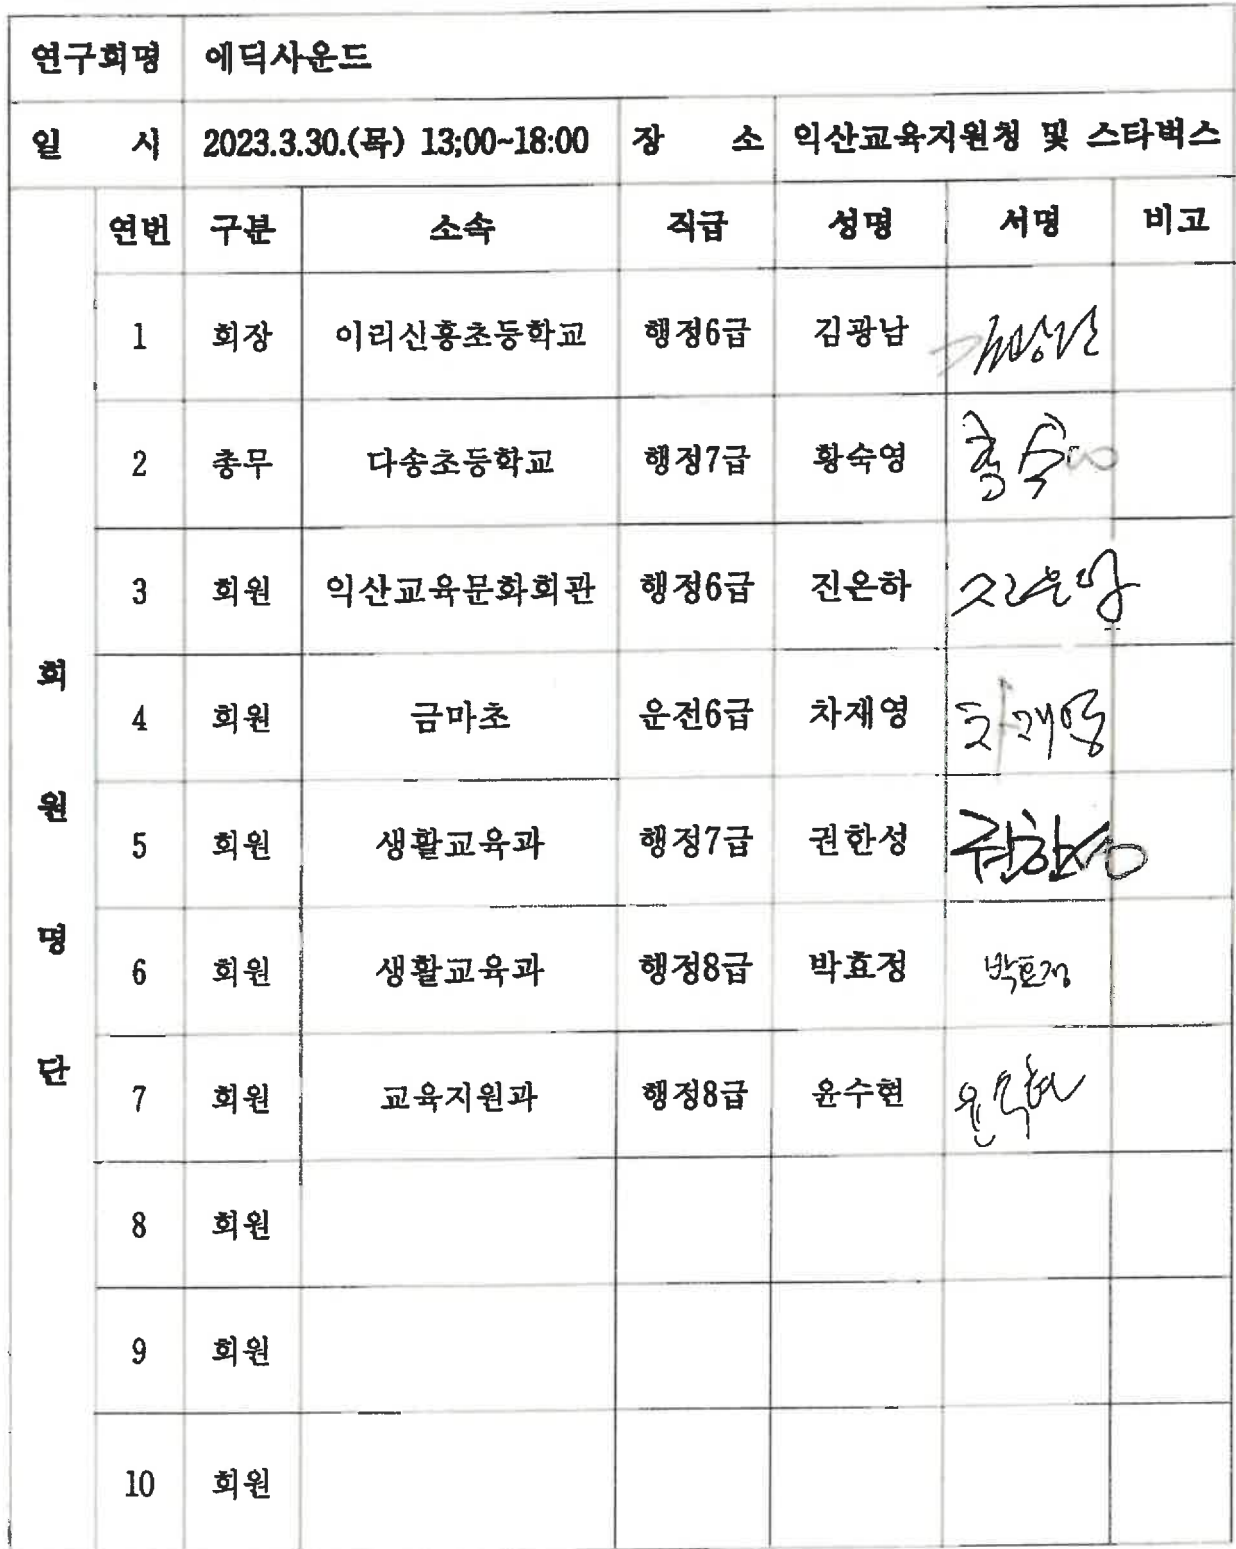 연구회명 에딕사운드
일 시 2023.3.30.(목) 13;00~18:00 장 소 익산교육지원청 및 스타벅스
회원명단
연번 구분 소속 직급 성명 서명 비고
1 회장 이리신흥초등학교 행정6급 김광남
2 총무 다송초등학교 행정7급 황숙영
3 회원 익산교육문화회관 행정6급 진은하
4 회원 금마초 운전6급 차재영 차재영
5 회원 생활교육과 행정7급 권한성 권한성
6 회원 생활교육과 행정8급 박효정 박효정
7 회원 교육지원과 행정8급 윤수현 윤수현
8 회원
9 회원
10 회원